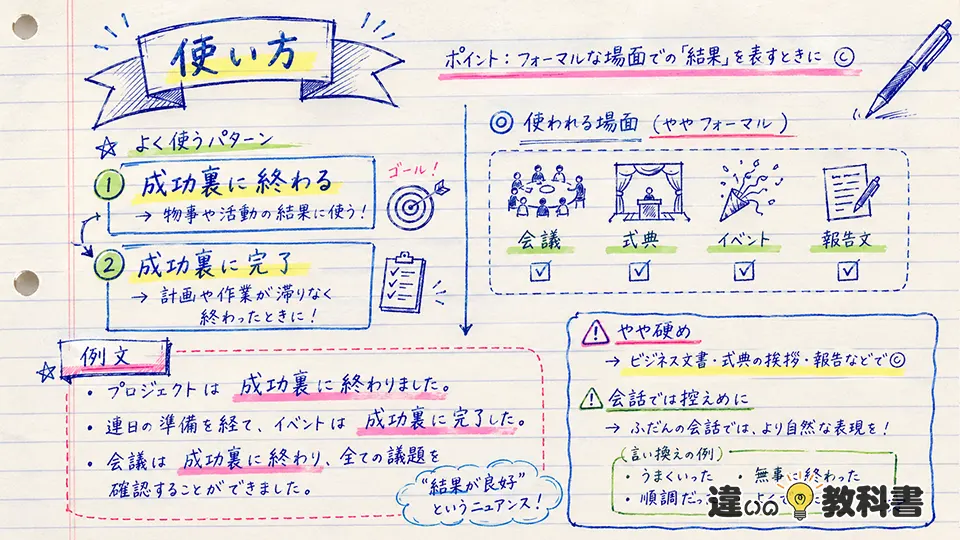 使い方
ポイント：フォーマルな場面での「結果」を表すときに◎
☆ よく使うパターン
① 成功裏に終わる
→ 物事や活動の結果に使う！
ゴール！
② 成功裏に完了
→ 計画や作業が滞りなく
終わったときに！
◎ 使われる場面（ややフォーマル）
会議 式典 イベント 報告文
☆ 例文
・プロジェクトは 成功裏に終わりました。
・連日の準備を経て、イベントは 成功裏に完了した。
・会議は 成功裏に終わり、全ての議題を
確認することができました。
“結果が良好”
というニュアンス！
やや硬め
→ ビジネス文書・式典の挨拶・報告などで◎
会話では控えめに
→ ふだんの会話では、より自然な表現を！
（言い換えの例）
・うまくいった ・無事に終わった
・順調だっ
違いの教科書